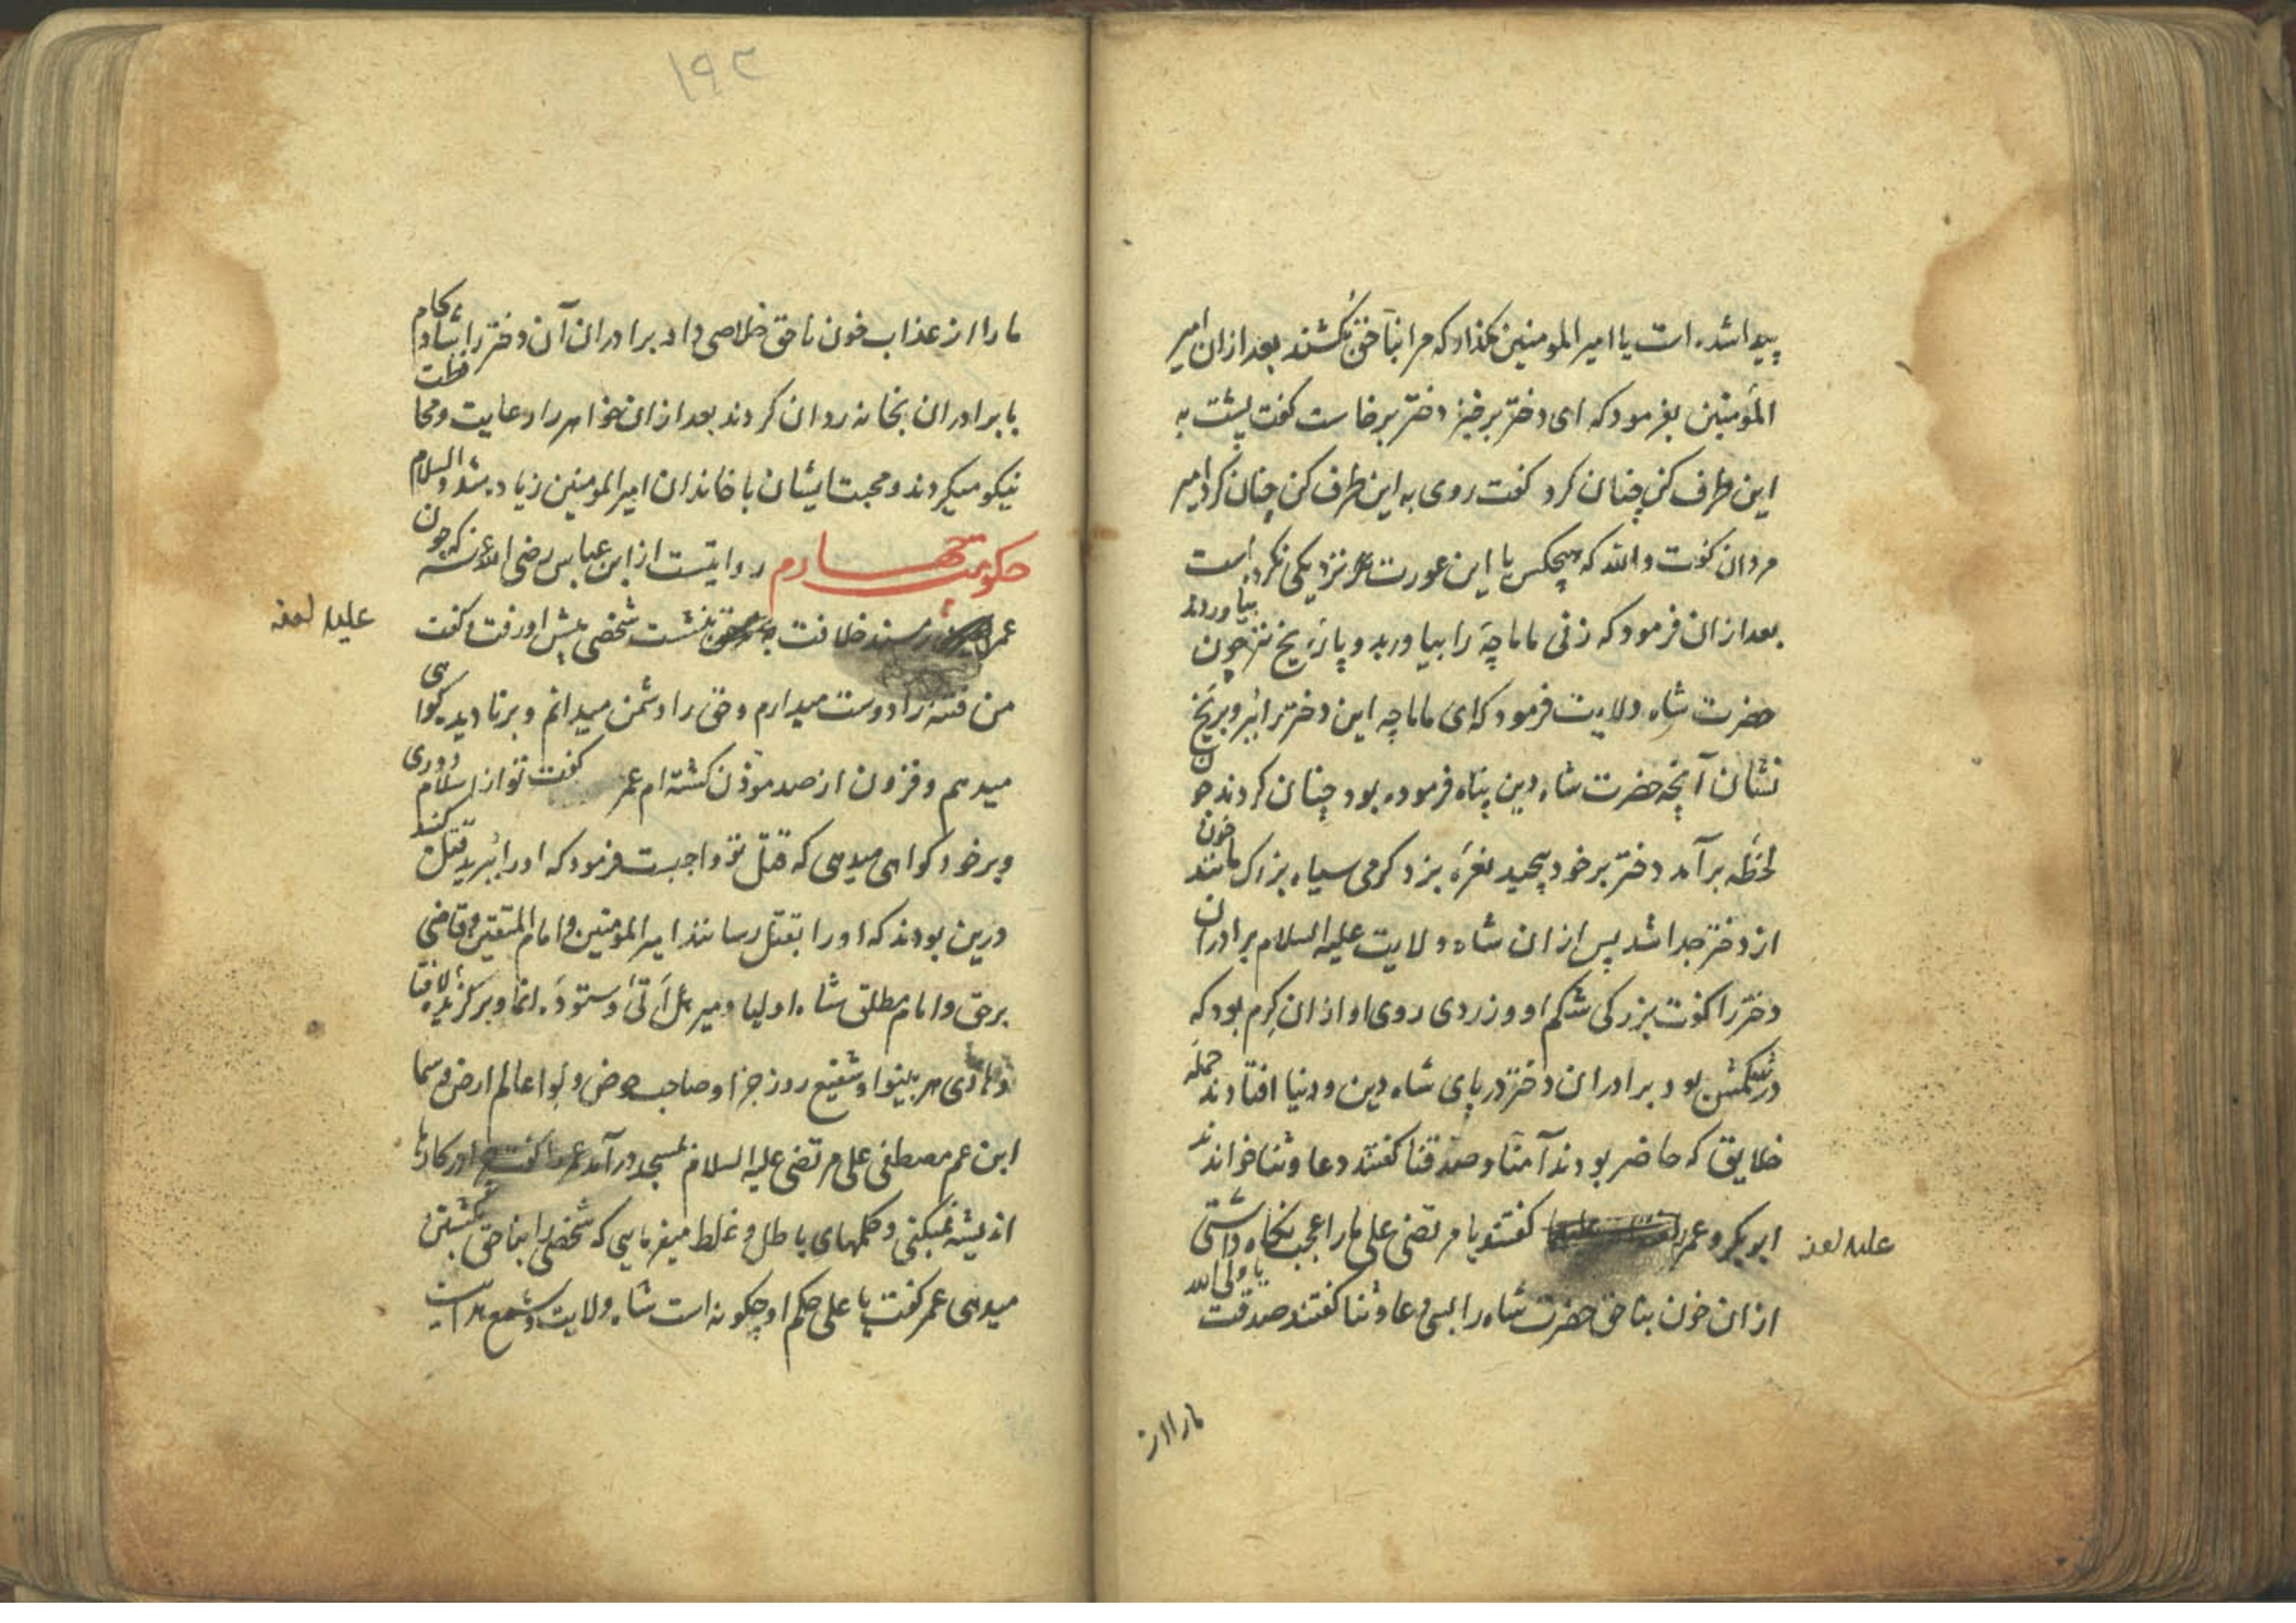 پیدا شده است یا امیر المومنین مگذار که مرا بناحق بکشند بعد ازان امیر
المؤمنین بفرمود که ای دختر برخیز دختر برخاست گفت پشت به
این طرف کن چنان کرد گفت روی به این طرف کن چنان کرد امیر
مردان گفت والله که هیچکس با این عورت نزدیکی نکرده است
بعد ازان فرمود که زنی ماماچه را بیاورید و پارۀ یخ نیز بیاوردند چون
حضرت شاه ولایت فرمود که ای ماماچه این دختر را ببر و بر یخ
نشان آنچه حضرت شاه دین پناه فرموده بود چنان کردند چون
لحظه برآمد دختر بر خود پیچید نعرۀ بزد کرمی سیاه بزرک مانند خون
از دختر جدا شد پس ازان شاه ولایت علیه السلام برادران
دختر را گفت بزرکی شکم او و زردی روی او ازان کرم بود که
در شکمش بود برادران دختر در پای شاه دین و دنیا افتادند جمله
خلایق که حاضر بودند آمنا و صدقنا گفتند دعا و ثنا خواندند
ابوبکر و عمر گفتند یا مرتضی علی ما را عجب نکاه داشتی
علیه لعنه
ازان خون بناحق حضرت شاه را بسی دعا و ثنا گفتند صدقت یا ولی الله
ما را از
۱۹۲
ما را از عذاب خون ناحق خلاصی داد برادران آن دختر را شاد کام
با برادران بخانه روان کردند بعد ازان خواهر را رعایت و محافظت
نیکو میکردند و محبت ایشان با خاندان امیر المومنین زیاده شد والسلام
حکومت چهارم روایتست از ابن عباس رضی الله عنه که چون
عمر بر مسند خلافت بنشست شخصی پیش او رفت و گفت
علیه لعنه
من فتنه را دوست میدارم و حق را دشمن میدانم و بر نادیده کواهی
میدهم و فزون از صد موذن کشته ام عمر گفت تو از اسلام دوری
و بر خود کواهی میدهی که قتل تو واجبست فرمود که او را ببرید قتل کنید
درین بودند که او را بقتل رسانند امیر المومنین و امام المتقین و قاضی
برحق و امام مطلق شاه اولیا و میر هل اتی و ستوده انما و برکزیده لافتا
و هادی هر بینوا و شفیع روز جزا و صاحب حوض و لوا عالم ارض و سما
ابن عم مصطفی علی مرتضی علیه السلام بمسجد درآمد عمر را گفت در کارها
اندیشه نمیکنی و حکمهای باطل و غلط میفرمایی که شخصی را بناحق بکشتن
میدهی عمر گفت یا علی حکم او چکونه است شاه ولایت و شمع هدایت